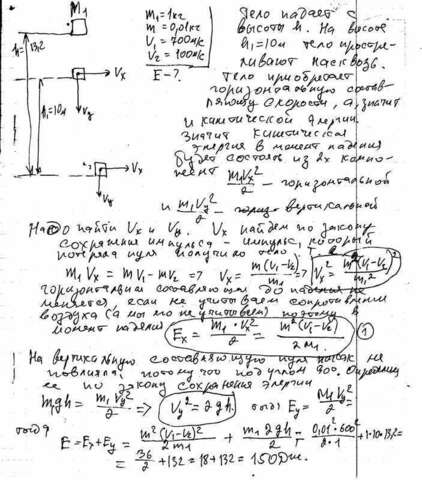 M₁
h = 13,2
h₁=10м
Vx
Vy
Vx
m₁=1кг
m=0,01кг
V₁=700м/с
V₂=100м/с
E-?
Тело падает с
высоты h. На высоте
h₁=10м тело простре-
ливают насквозь.
тело приобретает
горизонтальную состав-
ляющую скорости, а, значит
и кинетической энергии.
значит кинетическая
энергия в момент падения
будет состоять из 2х компо-
нент m₁Vx²/2 - горизонтальной
и m₁Vy²/2 - вертикальной
Надо найти Vx и Vy. Vx найдем по закону
сохранения импульса - импульс, который
потеряла пуля получило тело
m₁Vx = mV₁-mV₂ => Vx = m(V₁-V₂)/m₁ ; Vx² = m²(V₁-V₂)²/m₁²
горизонтальная составляющая до падения не
меняется, если не учитываем сопротивление
воздуха (а мы его не учитываем) поэтому в
момент падения Ex = m₁·Vx²/2 = m²(V₁-V₂)²/2m₁ (1)
На вертикальную составляющую пуля никак не
повлияла, потому что под углом 90°. Определим
ее по закону сохранения энергии
mgh = m₁Vy²/2 => Vy² = 2gh. тогда Ey = m₁Vy²/2 =
тогда
E = Ex+Ey = m²(V₁-V₂)²/2m₁ + m₁2gh/2 = 0,01²·600²/2·1 + 1·10·13,2=
= 36/2 + 132 = 18+132 = 150Дж.